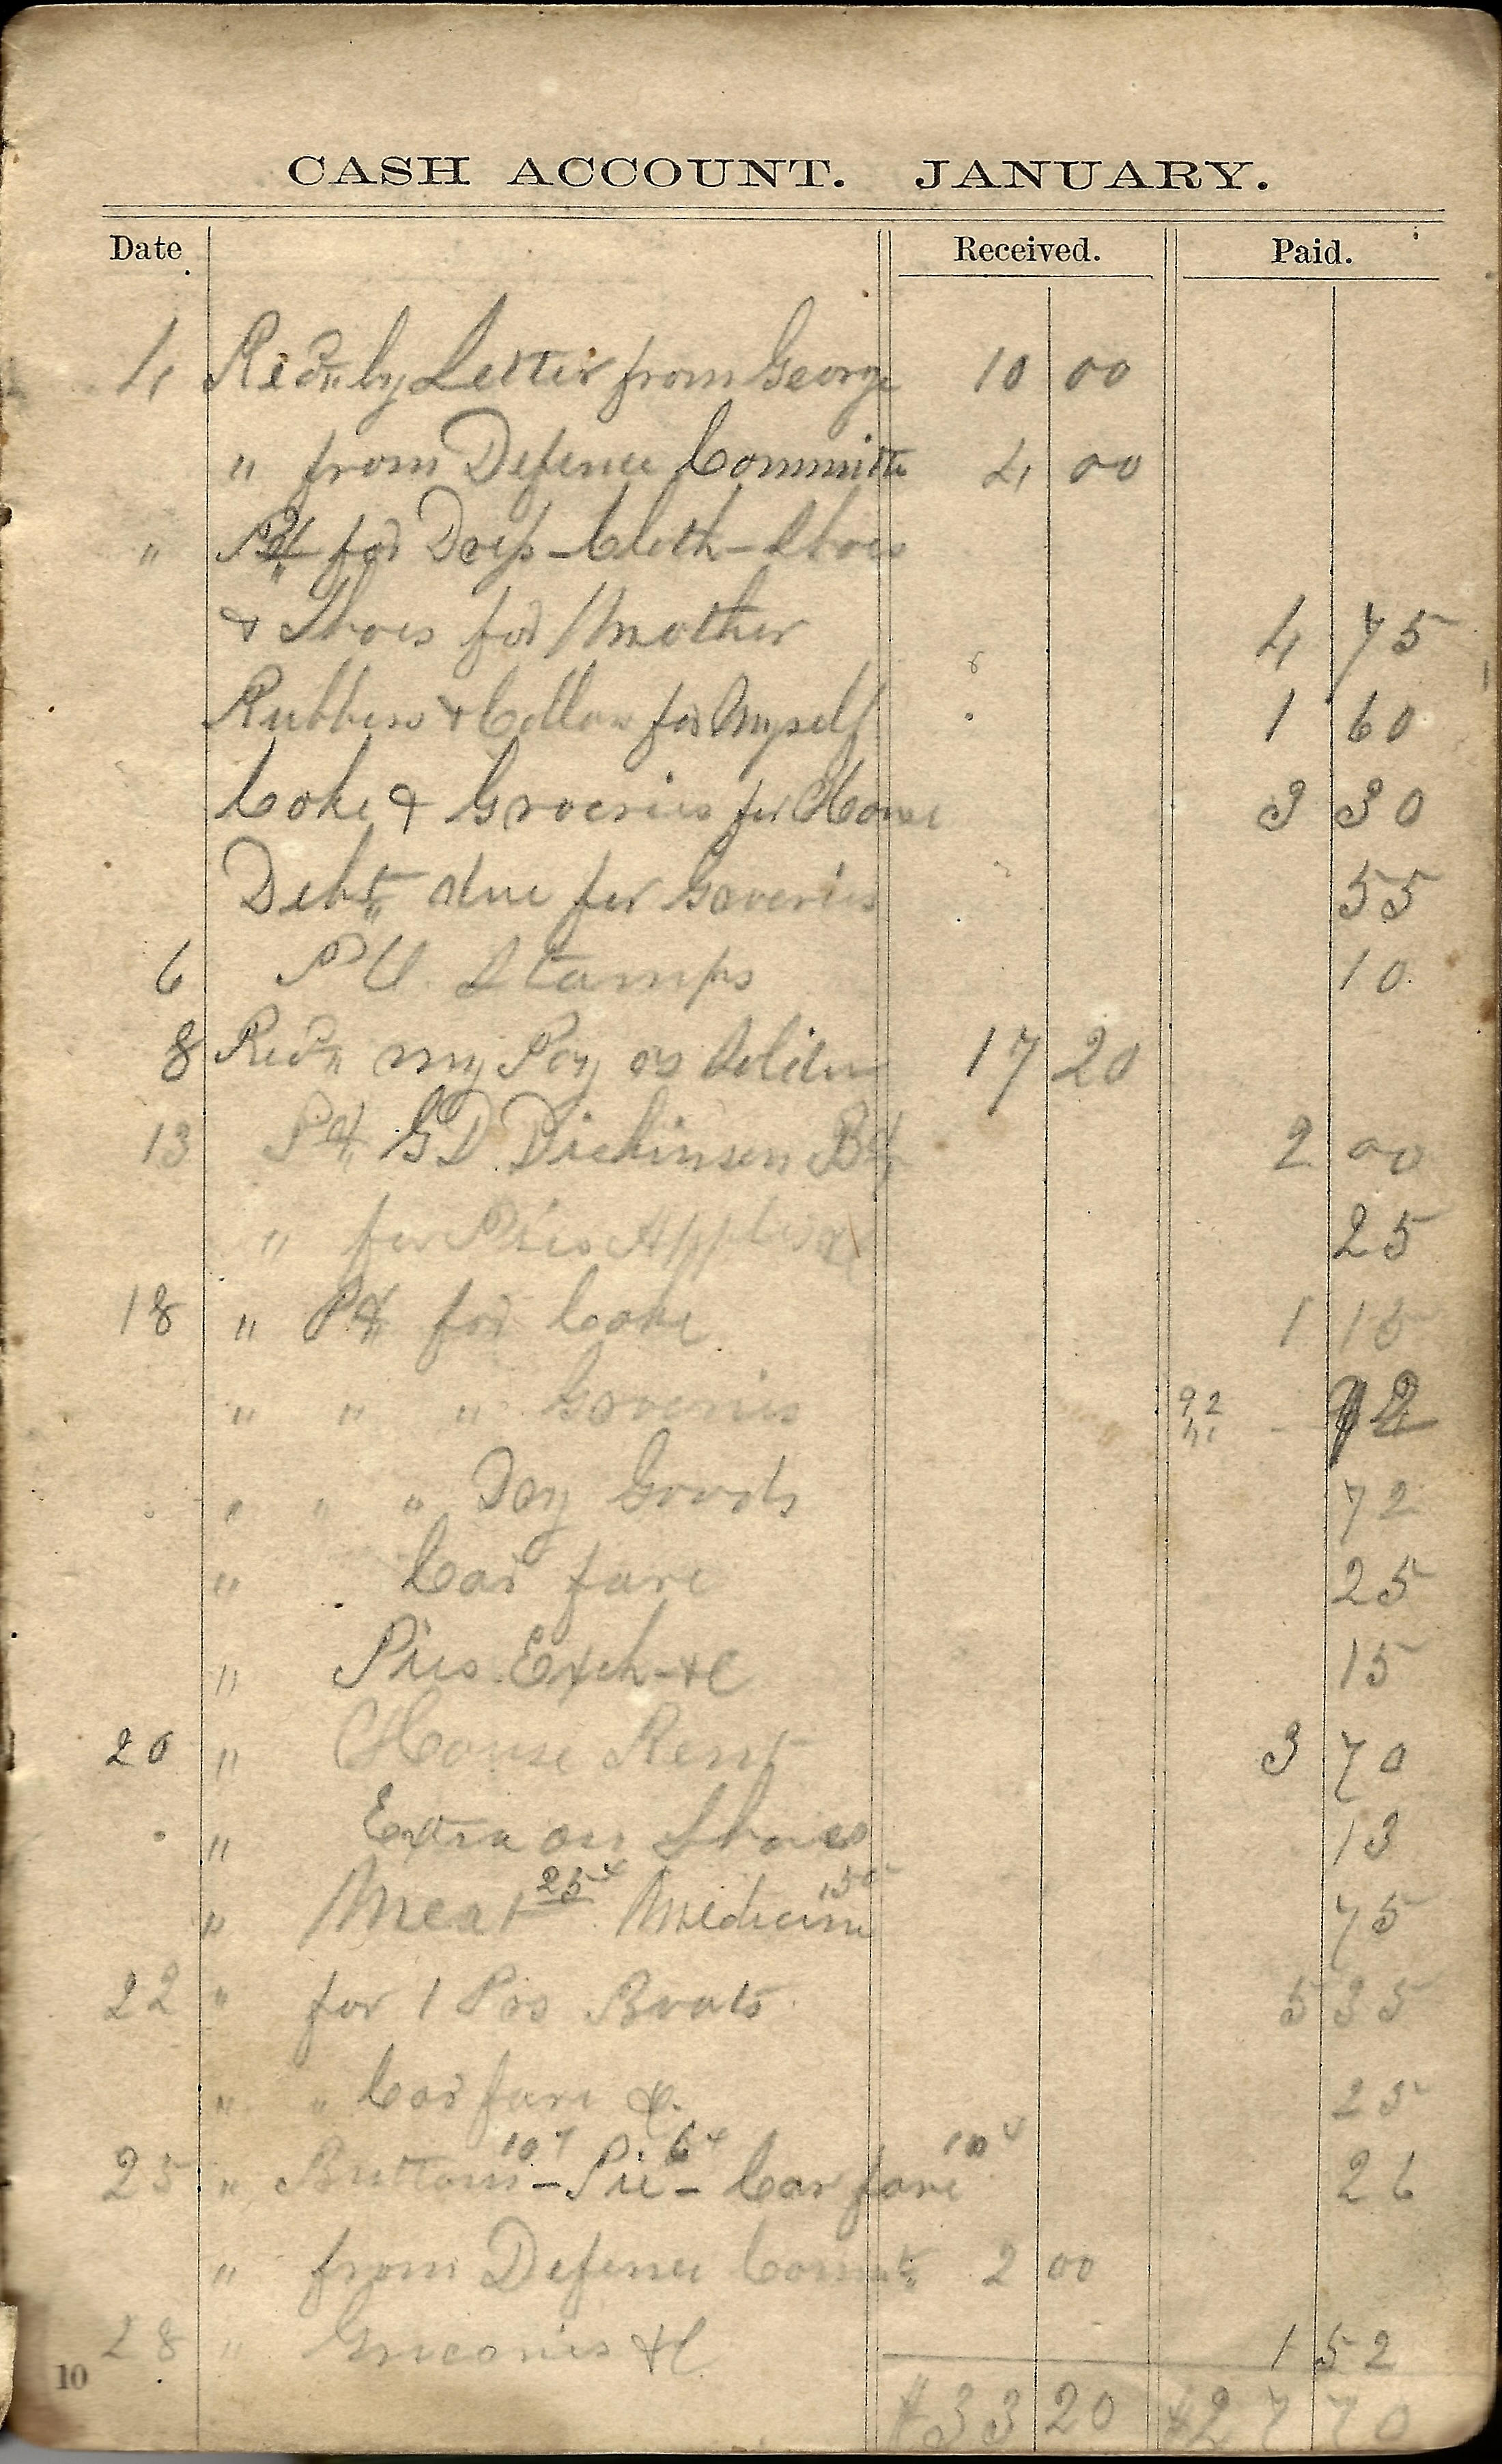 CASH ACCOUNT. JANUARY.
Date Received. Paid.
4 Recd by Letter from George 10 00
" from Defence Committe 4 00
" Pd for Dress - Cloth - Shoes
& Shoes for Mother 4 75
Rubbers & Collar for Myself 1 60
Coke & Groceries for House 3 30
Debt due for Groceries 55
6 P O. Stamps 10
8 Recd my Pay as Soldier 17 20
13 Pd G D Dickinson 2 00
" for Pies 25
18 " Pd for Coke 1 15
" " " Groceries 92 12
" " " Dry Goods 72
" Car fare 25
" Pies Exch - &C 15
20 " House Rent 3 70
" Extra on Shoes 13
" Meat 25 Medicine 75
22 " for 1 Prs Boots 5 35
" " Car fare &. 25
25 " Buttons 10 - Pie 6 - Car fare 10 26
" from Defence Commt 2 00
28 " Groceries &C 1 52
10 $33 20 $27 70